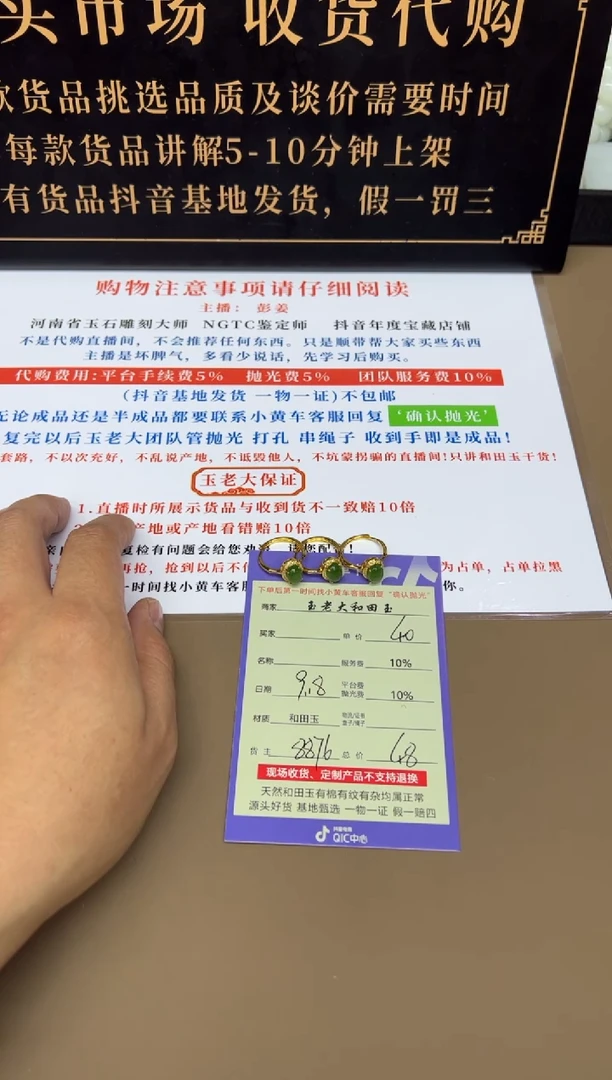 买市场 收货代购
款货品挑选品质及谈价需要时间
每款货品讲解5-10分钟上架
有货品抖音基地发货，假一罚三
购物注意事项请仔细阅读
主播：彭姜
河南省玉石雕刻大师 NGTC鉴定师 抖音年度宝藏店铺
不是代购直播间，不会推荐任何东西。只是顺带帮大家买些东西
主播是坏脾气，多看少说话，先学习后购买。
代购费用:平台手续费5% 抛光费5% 团队服务费10%
(抖音基地发货 一物一证)不包邮
无论成品还是半成品都要联系小黄车客服回复 ‘确认抛光’
复完以后玉老大团队管抛光 打孔 串绳子 收到手即是成品!
套路，不以次充好，不乱说产地，不诋毁他人，不坑蒙拐骗的直播间!只讲和田玉干货!
玉老大保证
1.直播时所展示货品与收到货不一致赔10倍
产地或产地看错赔10倍
复检有问题会给您
再抢，抢到以后不 为占单，占单拉黑
一时间找小黄车客服 你。
下单后第一时间找小黄车客服回复“确认抛光”
商家 玉老大和田玉
买家 单价 40
名称 服务费 10%
日期 9.8 平台费 抛光费 10%
材质 和田玉
货主 8876 总价 48
现场收货、定制产品不支持退换
天然和田玉有棉有纹有杂均属正常
源头好货 基地甄选 一物一证 假一赔四
抖音电商
QIC中心